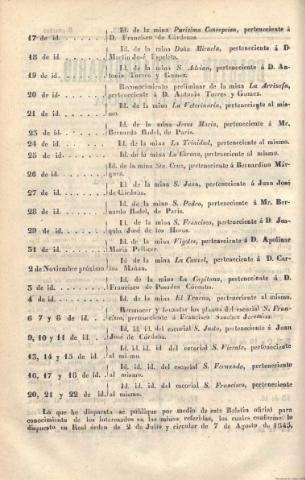 Id. de la mina Purisima Concepcion, perteneciente á
17 de id. D. Francisco de Cárdenas.
Id. de la mina Doña Micaela, perteneciente á D.
18 de id. Martin José
Id. de la mina S. Adrian, perteneciente á D. An-
19 de id. tonio Torres y Gomez.
Reconocimiento preliminar de la mina La Arrizafa,
20 de id. perteneciente á D. Antonio Torres y Gomez.
Id. de la mina La Veterinaria, perteneciente al mis-
21 de id. mo.
Id. de la mina Jesus Maria, perteneciente á Mr.
23 de id. Bernardo Badel, de Paris.
24 de id. Id. de la mina La Trinidad, perteneciente al mismo.
25 de id. Id. de la mina La perteneciente al mismo.
Id. de la mina Sta Cruz, perteneciente á Bernardino Már-
26 de id. quez.
Id. de la mina S. Juan, perteneciente á Juan José
27 de id. de Córdoba.
Id. de la mina S. Pedro, perteneciente á Mr. Ber-
28 de id. nardo Badel, de Paris.
Id. de la mina S. Francisco, perteneciente á D. Joa-
29 de id. quin José de los Heros.
Id. de la mina perteneciente á D. Apolinar
31 de id. Maria Pellicer.
Id. de la mina La perteneciente á D. Car-
2 de Noviembre próximo los Mañas.
Id. de la mina La Capitana, perteneciente á D.
3 de id. Francisco de Posadas
4 de id. Id. de la mina El Trueno, perteneciente al mismo.
Reconocer y levantar los planos del escorial S. Fran-
6 7 y 8 de id. cisco, perteneciente á Francisco Sanchez
Id. id. id. del escorial S. Justo, perteneciente á Juan
9, 10 y 11 de id. José de Córdoba.
Id. id. id. id. del escorial S. Vicente, perteneciente
13, 14 y 15 de id. al mismo.
Id. id. id. del escorial S. Fernando, perteneciente al
16, 17 y 18 de id. mismo.
Id. id. id. del escorial S. Francisco, perteneciente
20, 21 y 22 de id. al mismo.
Lo que he dispuesto se publique por medio de este Boletin oficial para
conocimiento de los interesados en las minas referidas, los cuales conforme lo
dispuesto en Real órden de 2 de Julio y circular de 7 de Agosto de 1845,